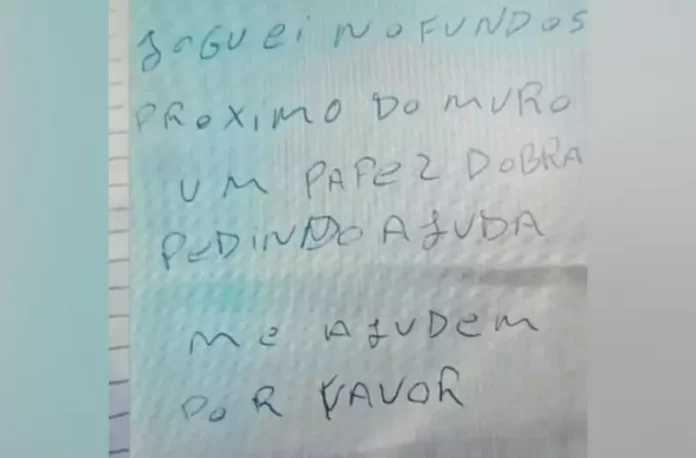 JOGUEI NO FUNDOS
PROXIMO DO MURO
UM PAPEL DOBRA
PEDINDO AJUDA
Me AJUDEM
POR FAVOR